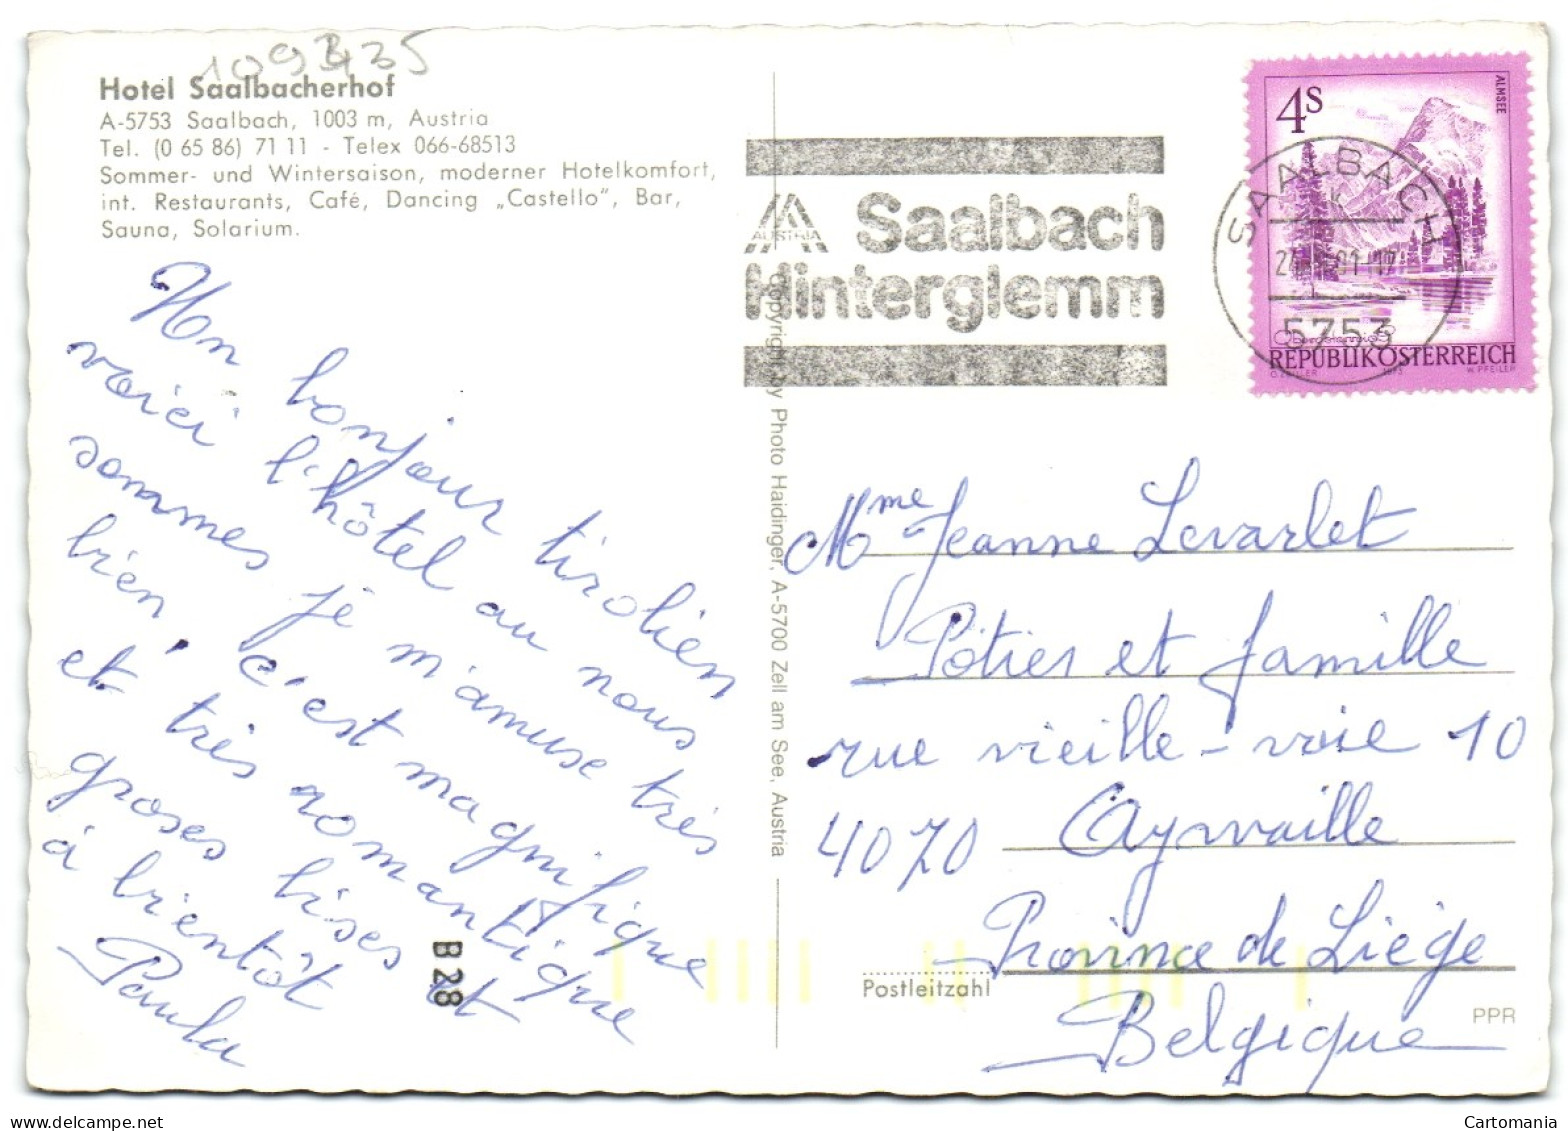 109335
Hotel Saalbacherhof
A-5753 Saalbach, 1003 m, Austria
Tel. (0 65 86) 71 11 - Telex 066-68513
Sommer- und Wintersaison, moderner Hotelkomfort,
int. Restaurants, Café, Dancing „Castello“, Bar,
Sauna, Solarium.
Un bonjour tirolien
voici l'hôtel au nous
sommes je m'amuse très
bien, c'est magnifique
et très romantique
groses bises et
à bientôt
Paula
B 28
Copyright by Photo Haidinger, A-5700 Zell am See, Austria
AUSTRIA
Saalbach
Hinterglemm
4S
ALMSEE
SAALBACH
91-17
5753
Oberösterreich
REPUBLIK ÖSTERREICH
1973
W. PFEILER
Mme Jeanne Levarlet
Potier et famille
rue vieille-voie 10
4070 Aywaille
Province de Liège
Postleitzahl
Belgique
PPR
Cartomania